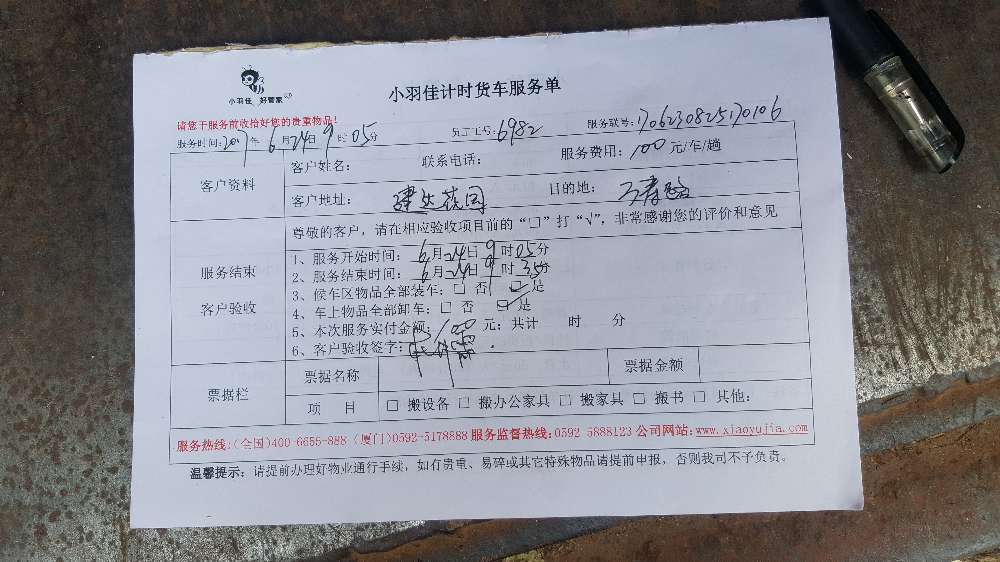 小羽佳 好管家
小羽佳计时货车服务单
请您于服务前收拾好您的贵重物品!
服务时间:2017年6月24日9时05分 员工工号:6982 服务联号:1706230825170106
客户资料
客户姓名: 联系电话: 服务费用:100元/车/趟
客户地址: 建达花园 目的地:
服务结束
客户验收
尊敬的客户,请在相应验收项目前的“□”打“√”,非常感谢您的评价和意见
1、服务开始时间:6月24日9时05分
2、服务结束时间:6月24日9时35分
3、候车区物品全部装车:□ 否 ☑ 是
4、车上物品全部卸车:□ 否 ☑ 是
5、本次服务实付金额:100元;共计 时 分
6、客户验收签字:
票据栏
票据名称 票据金额
项 目 □ 搬设备 □ 搬办公家具 □ 搬家具 □ 搬书 □ 其他:
服务热线:(全国)400-6655-888 (厦门)0592-5178888 服务监督热线:0592 5888123 公司网站:www.xiaoyujia.com
温馨提示:请提前办理好物业通行手续,如有贵重、易碎或其它特殊物品请提前申报,否则我司不予负责。